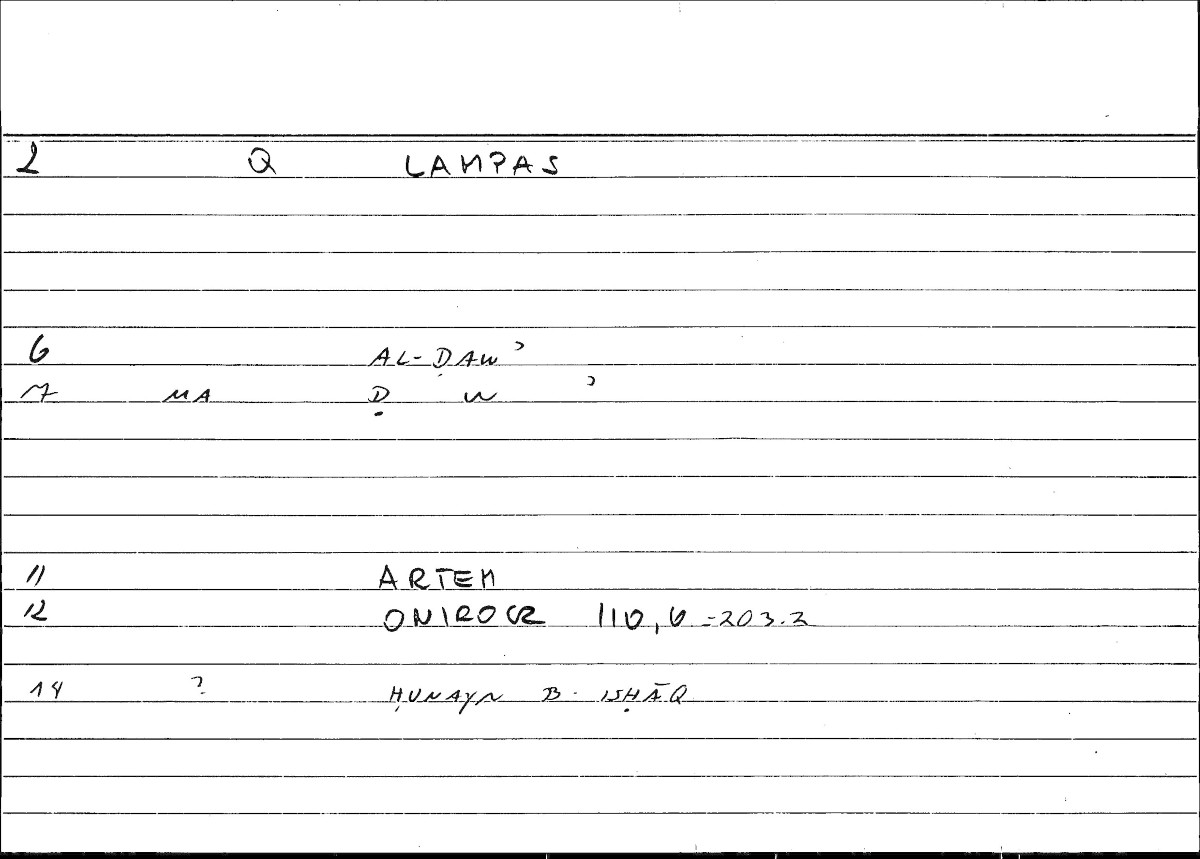 2 Q LAMPAS
6 AL-ḌAWʾ
7 MA Ḍ W ʾ
11 ARTEM
12 ONIROCR 110,6 = 203.2
14 ? ḤUNAYN B. ISḤĀQ